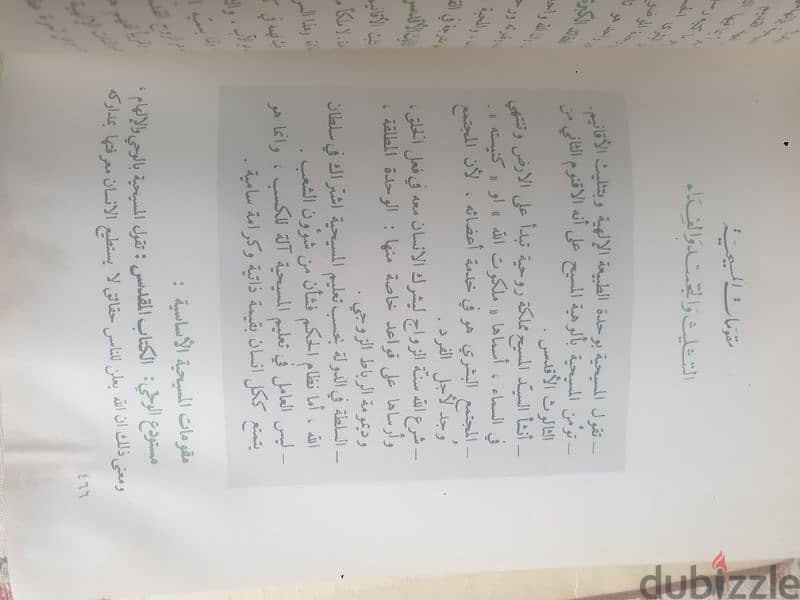 مقومات المسيحية
التثليث والتجسد والفداء
ــ تقول المسيحية بوحدة الطبيعة الإلهية وبتثليث الأقانيم.
ــ تؤمن المسيحية بألوهية المسيح على أنه الاقنوم الثاني من
الثالوث الأقدس.
ــ أنشأ السيّد المسيح مملكة روحية تبدأ على الارض وتنتهي
في السماء ، أسماها « ملكوت الله » او « كنيسته » .
ــ المجتمع البشري هو في خدمة أعضائه ، لأن المجتمع
وجد لأجل الفرد .
ــ شرع الله سنّة الزواج ليشرك الانسان معه في فعل الخلق ،
وأرساها على قواعد خاصة منها : الوحدة المطلقة ،
وديمومة الرباط الزوجي .
ــ السلطة في الدولة بحسب تعليم المسيحية اشتراك في سلطان
الله ، أما نظام الحكم فشأن من شؤون الشعب .
ــ ليس العامل في تعليم المسيحية آلة للكسب ، وانما هو
يتمتع ككل انسان بقيمة ذاتية وكرامة سامية .
مقومات المسيحية الأساسية :
مستودع الوحي : الكتاب المقدس : تقول المسيحية بالوحي والإلهام ،
ومعنى ذلك ان الله يعلن للناس حقائق لا يستطيع الانسان معرفتها بمداركه
٤٦٦
dubizzle